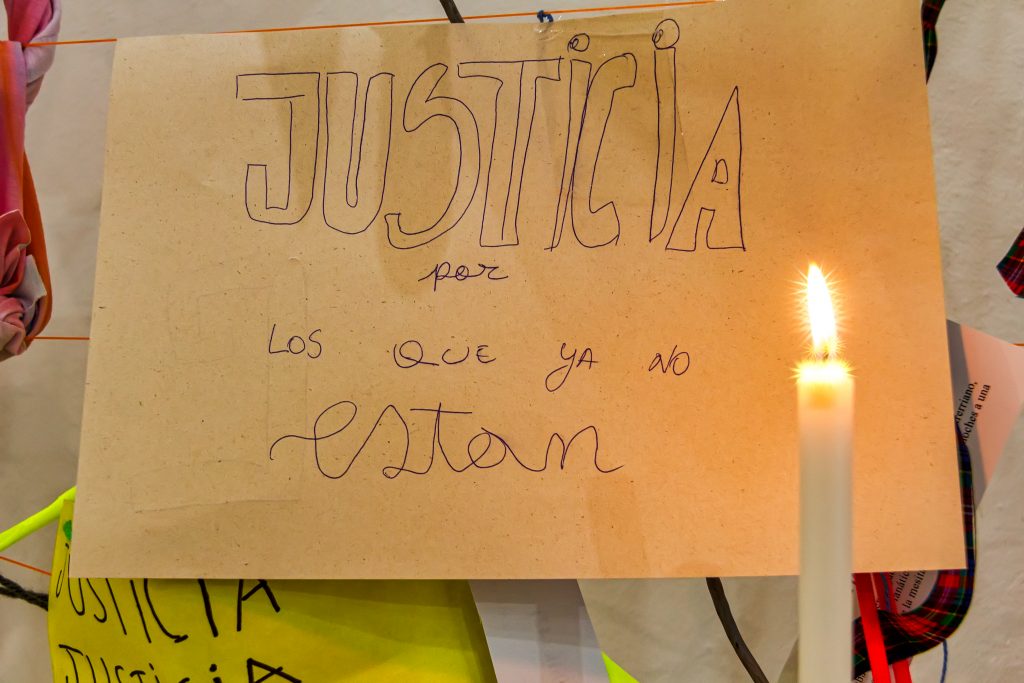 JUSTICIA
por
LOS QUE YA NO
estan
JUSTICIA
JUSTICIA
ferriano,
noches a una
la mesit